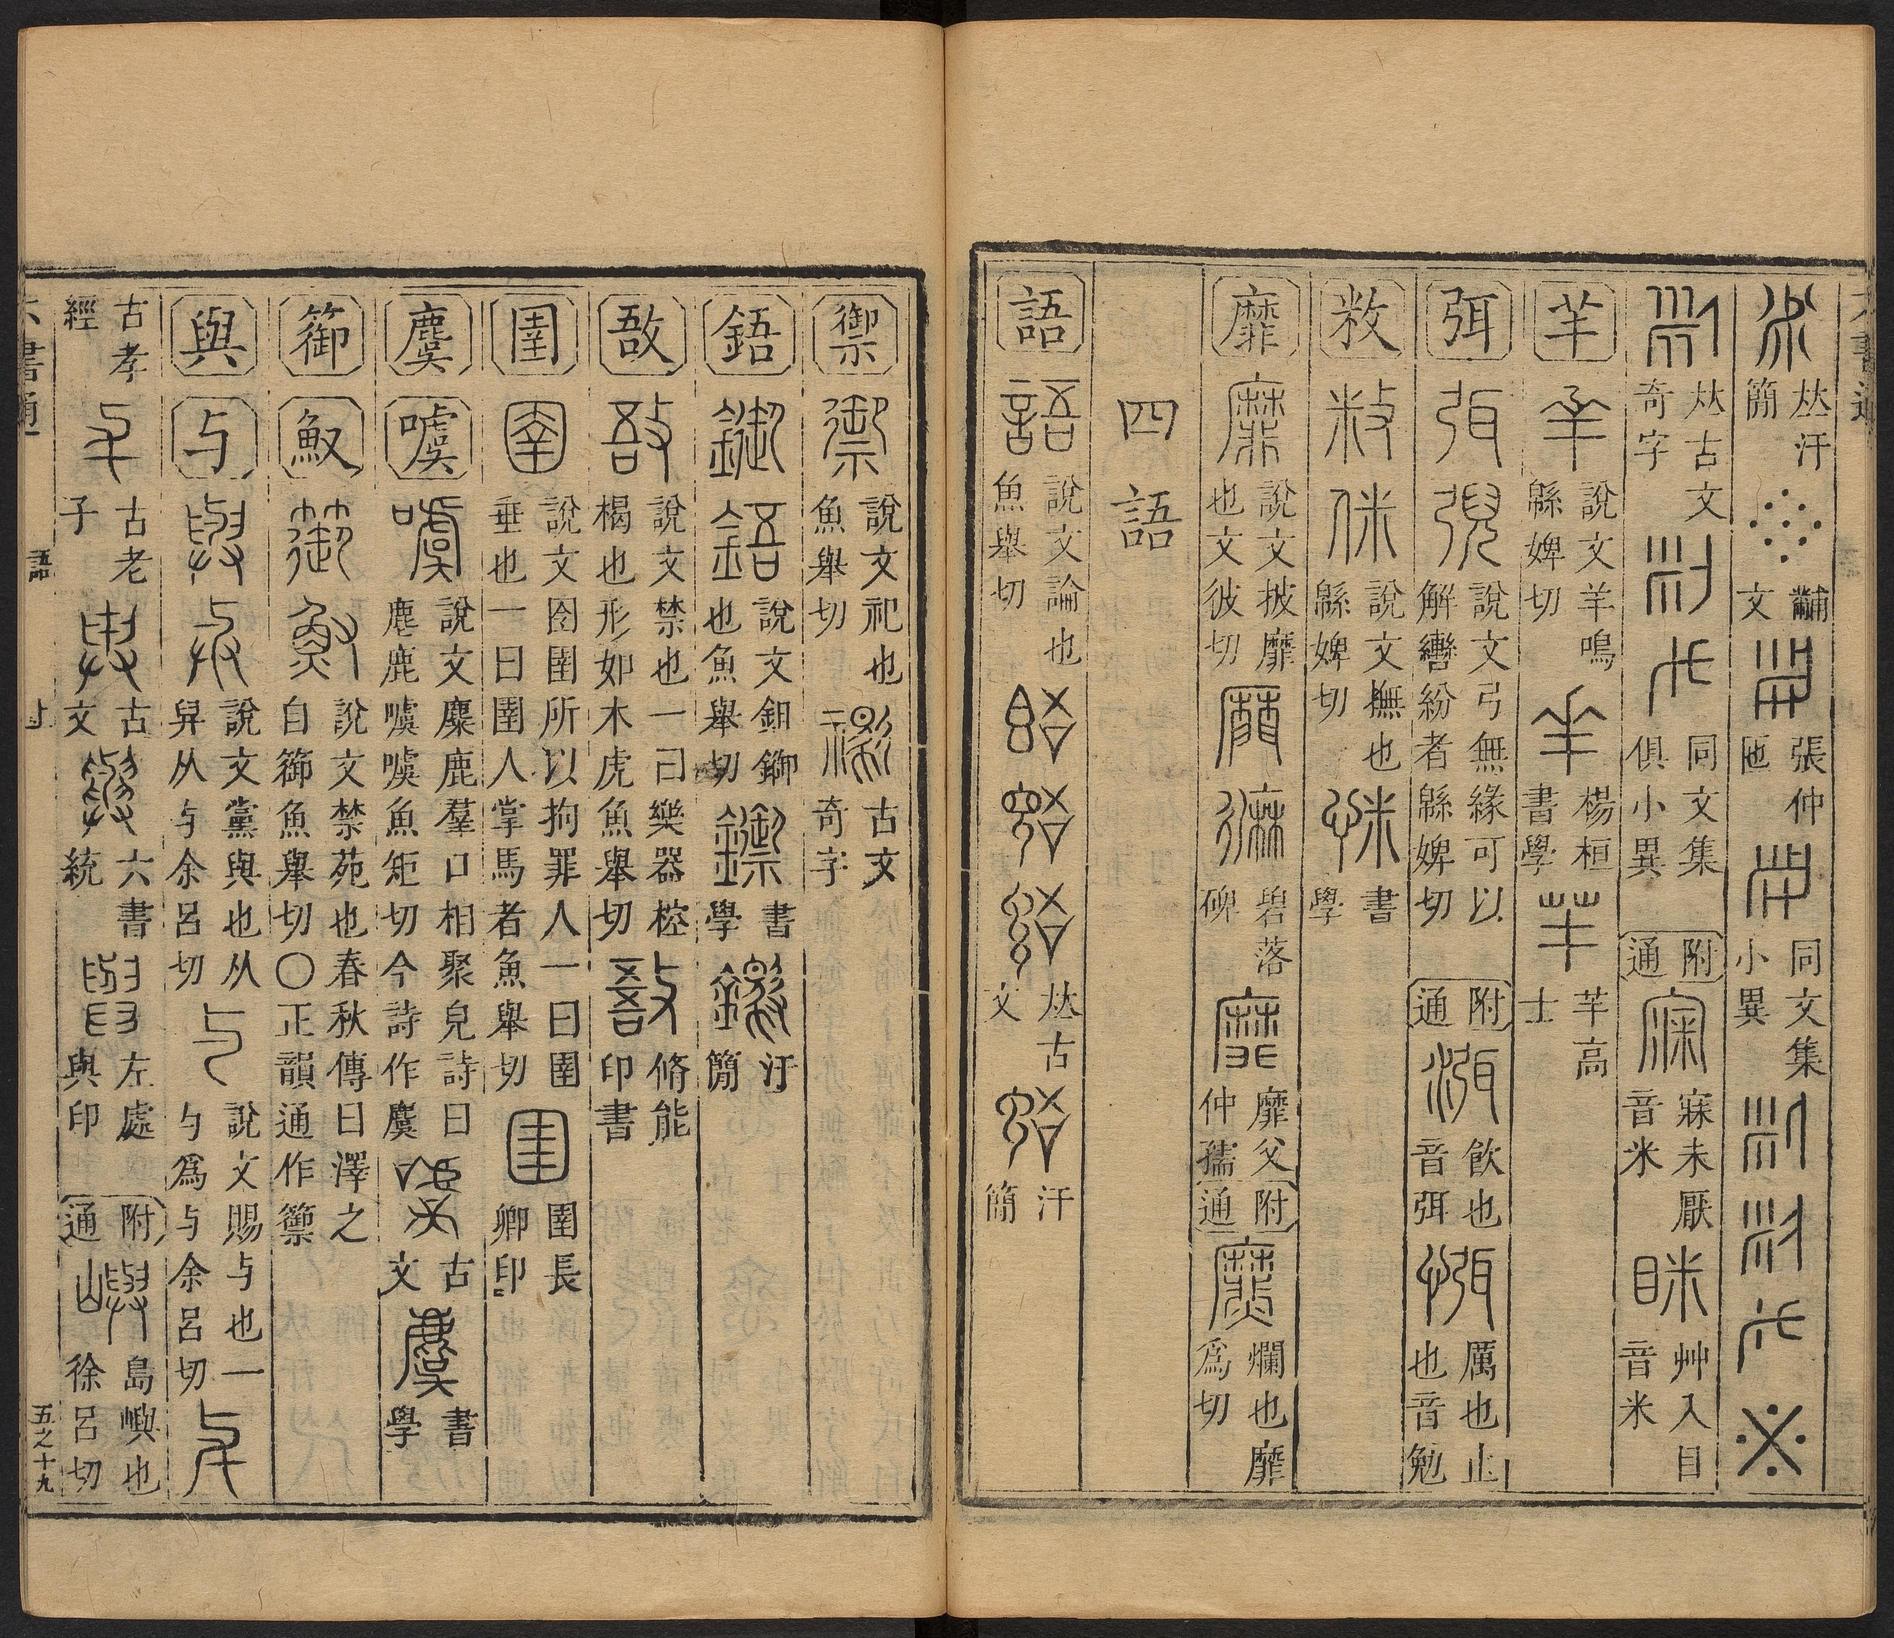 𠀤汗簡
黼文
張仲匜
同文集小異
𠀤古文奇字
同文集俱小異
附通
寐未厭音米
艸入目音米
羋
說文羊鳴緜婢切
楊桓書學
芉高士
弭
說文弓無緣可以解轡紛者緜婢切
附通
飲也音弭
厲也止也音勉
敉
說文撫也緜婢切
書學
靡
說文披靡也文彼切
碧落碑
靡父仲孺
附通
爛也靡爲切
四語
語
說文論也魚舉切
𠀤古文
汗簡
禦
說文祀也魚舉切
古文奇字
鋙
說文鉏鋤也魚舉切
書學
汗簡
敔
說文禁也一曰樂器椌楬也形如木虎魚舉切
脩能印書
圉
說文囹圉所以拘罪人一曰圉垂也一曰圉人掌馬者魚舉切
圉長卿印
麌 噳
說文麋鹿羣口相聚皃詩曰麀鹿噳噳魚矩切今詩作麌
古文
書學
篽 䱷
說文禁苑也春秋傳曰澤之自篽魚舉切〇正韻通作籞
與 与
說文黨與也从舁从与余呂切
說文賜与也一勺爲与余呂切
古孝經
古老子
古文
六書統
左處與印
附通
島嶼也徐呂切
六書通
語
五之十九